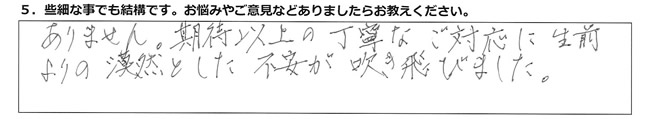 5．些細な事でも結構です。お悩みやご意見などありましたらお教えください。
ありません。期待以上の丁寧なご対応に生前
よりの漠然とした不安が吹き飛びました。